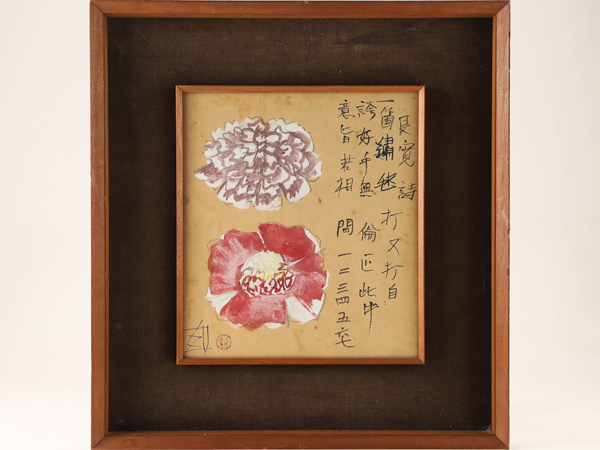 良寛詩
一箇繡毬打又打自
誇好手無倫正此中
意旨若相問一二三四五六七